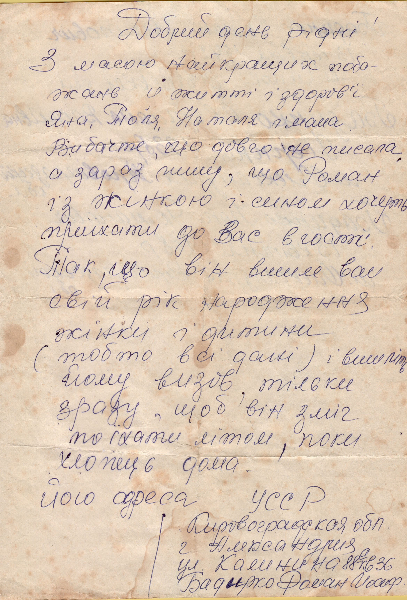 Добрий день рідні!
З масою найкращих поба-
жань в житті і здоров'ї
Яна, Толя, Наталя і мама.
Вибачте, що довго не писала
а зараз пишу, що Роман
із жінкою і сином хочуть
приїхати до Вас в гості.
Так, що він вишле вам
свій рік народження
жінки і дитини
(тобто всі дані) і вишліть
йому визов, тільки
зразу, щоб він зміг
поїхати літом, поки
хлопець дома.
Його адреса УССР
Кировоградская обл
г. Александрия
ул. Калинина
Роман